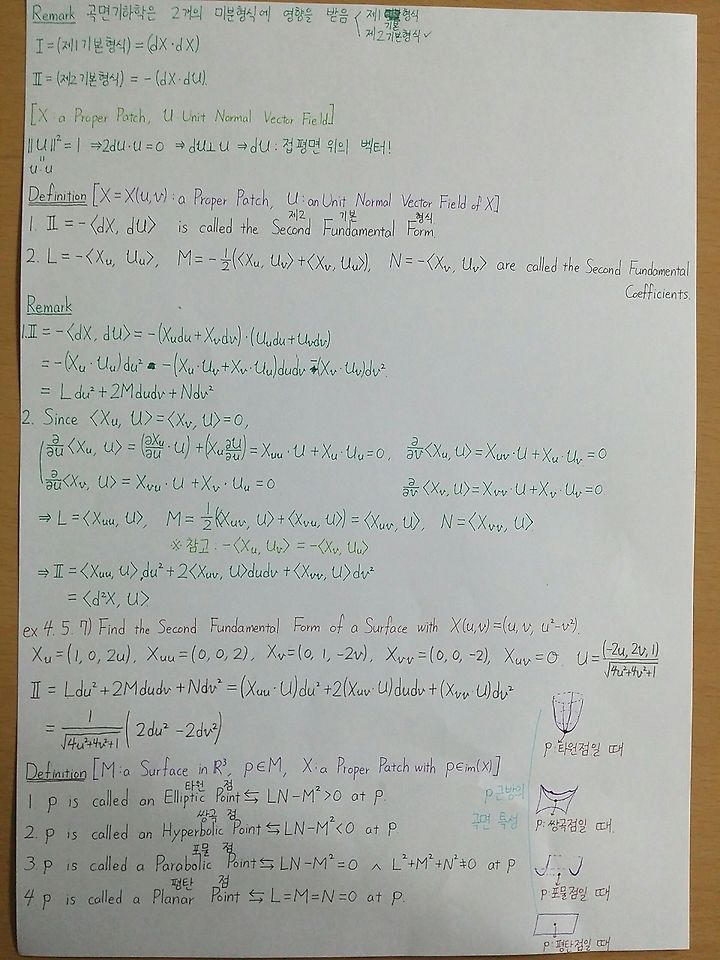 Remark 곡면기하학은 2개의 미분형식에 영향을 받음 < 제1기본형식
제2기본형식 ✓
I = (제1기본형식) = (dX·dX)
II = (제2기본형식) = -(dX·dU).
[X: a Proper Patch, U: Unit Normal Vector Field.]
||U||² = 1 ⇒ 2dU·U = 0 ⇒ dU⊥U ⇒ dU : 접평면 위의 벡터!
U·U
Definition [X=X(u,v): a Proper Patch, U: an Unit Normal Vector Field of X]
1. II = -⟨dX, dU⟩ is called the Second Fundamental Form.
제2 기본 형식
2. L = -⟨Xu, Uu⟩, M = -1/2(⟨Xu, Uv⟩+⟨Xv, Uu⟩), N = -⟨Xv, Uv⟩ are called the Second Fundamental
Coefficients.
Remark
1. II = -⟨dX, dU⟩ = -(Xudu+Xvdv)·(Uudu+Uvdv)
= -(Xu·Uu)du² -(Xu·Uv+Xv·Uu)dudv -(Xv·Uv)dv².
= Ldu²+2Mdudv+Ndv²
2. Since ⟨Xu, U⟩=⟨Xv, U⟩=0,
∂/∂u⟨Xu, U⟩ = (∂Xu/∂u·U)+(Xu ∂U/∂u) = Xuu·U+Xu·Uu=0, ∂/∂v⟨Xu, U⟩=Xuv·U+Xu·Uv=0
∂/∂u⟨Xv, U⟩ = Xvu·U+Xv·Uu=0 ∂/∂v⟨Xv, U⟩=Xvv·U+Xv·Uv=0.
⇒ L=⟨Xuu, U⟩, M=1/2(⟨Xuv, U⟩+⟨Xvu, U⟩)=⟨Xuv, U⟩, N=⟨Xvv, U⟩
※참고: -⟨Xu, Uv⟩ = -⟨Xv, Uu⟩
⇒ II = ⟨Xuu, U⟩du²+2⟨Xuv, U⟩dudv+⟨Xvv, U⟩dv²
= ⟨d²X, U⟩
ex 4.5.7) Find the Second Fundamental Form of a Surface with X(u,v)=(u, v, u²-v²).
Xu=(1, 0, 2u), Xuu=(0, 0, 2), Xv=(0, 1, -2v), Xvv=(0, 0, -2), Xuv=0. U=(-2u, 2v, 1)/√(4u²+4v²+1)
II = Ldu²+2Mdudv+Ndv² = (Xuu·U)du²+2(Xuv·U)dudv+(Xvv·U)dv²
= 1/√(4u²+4v²+1) (2du²-2dv²)
p: 타원점일 때
Definition [M: a Surface in R³, p∈M, X: a Proper Patch with p∈im(X)]
타원 점
1. p is called an Elliptic Point ⇆ LN-M²>0 at p.
p근방위
곡면 특성
쌍곡 점
2. p is called an Hyperbolic Point ⇆ LN-M²<0 at p
p: 쌍곡점일 때.
포물 점
3. p is called a Parabolic Point ⇆ LN-M²=0 ∧ L²+M²+N²≠0 at p
p: 포물점일 때
평탄 점
4. p is called a Planar Point ⇆ L=M=N=0 at p.
p: 평탄점일 때